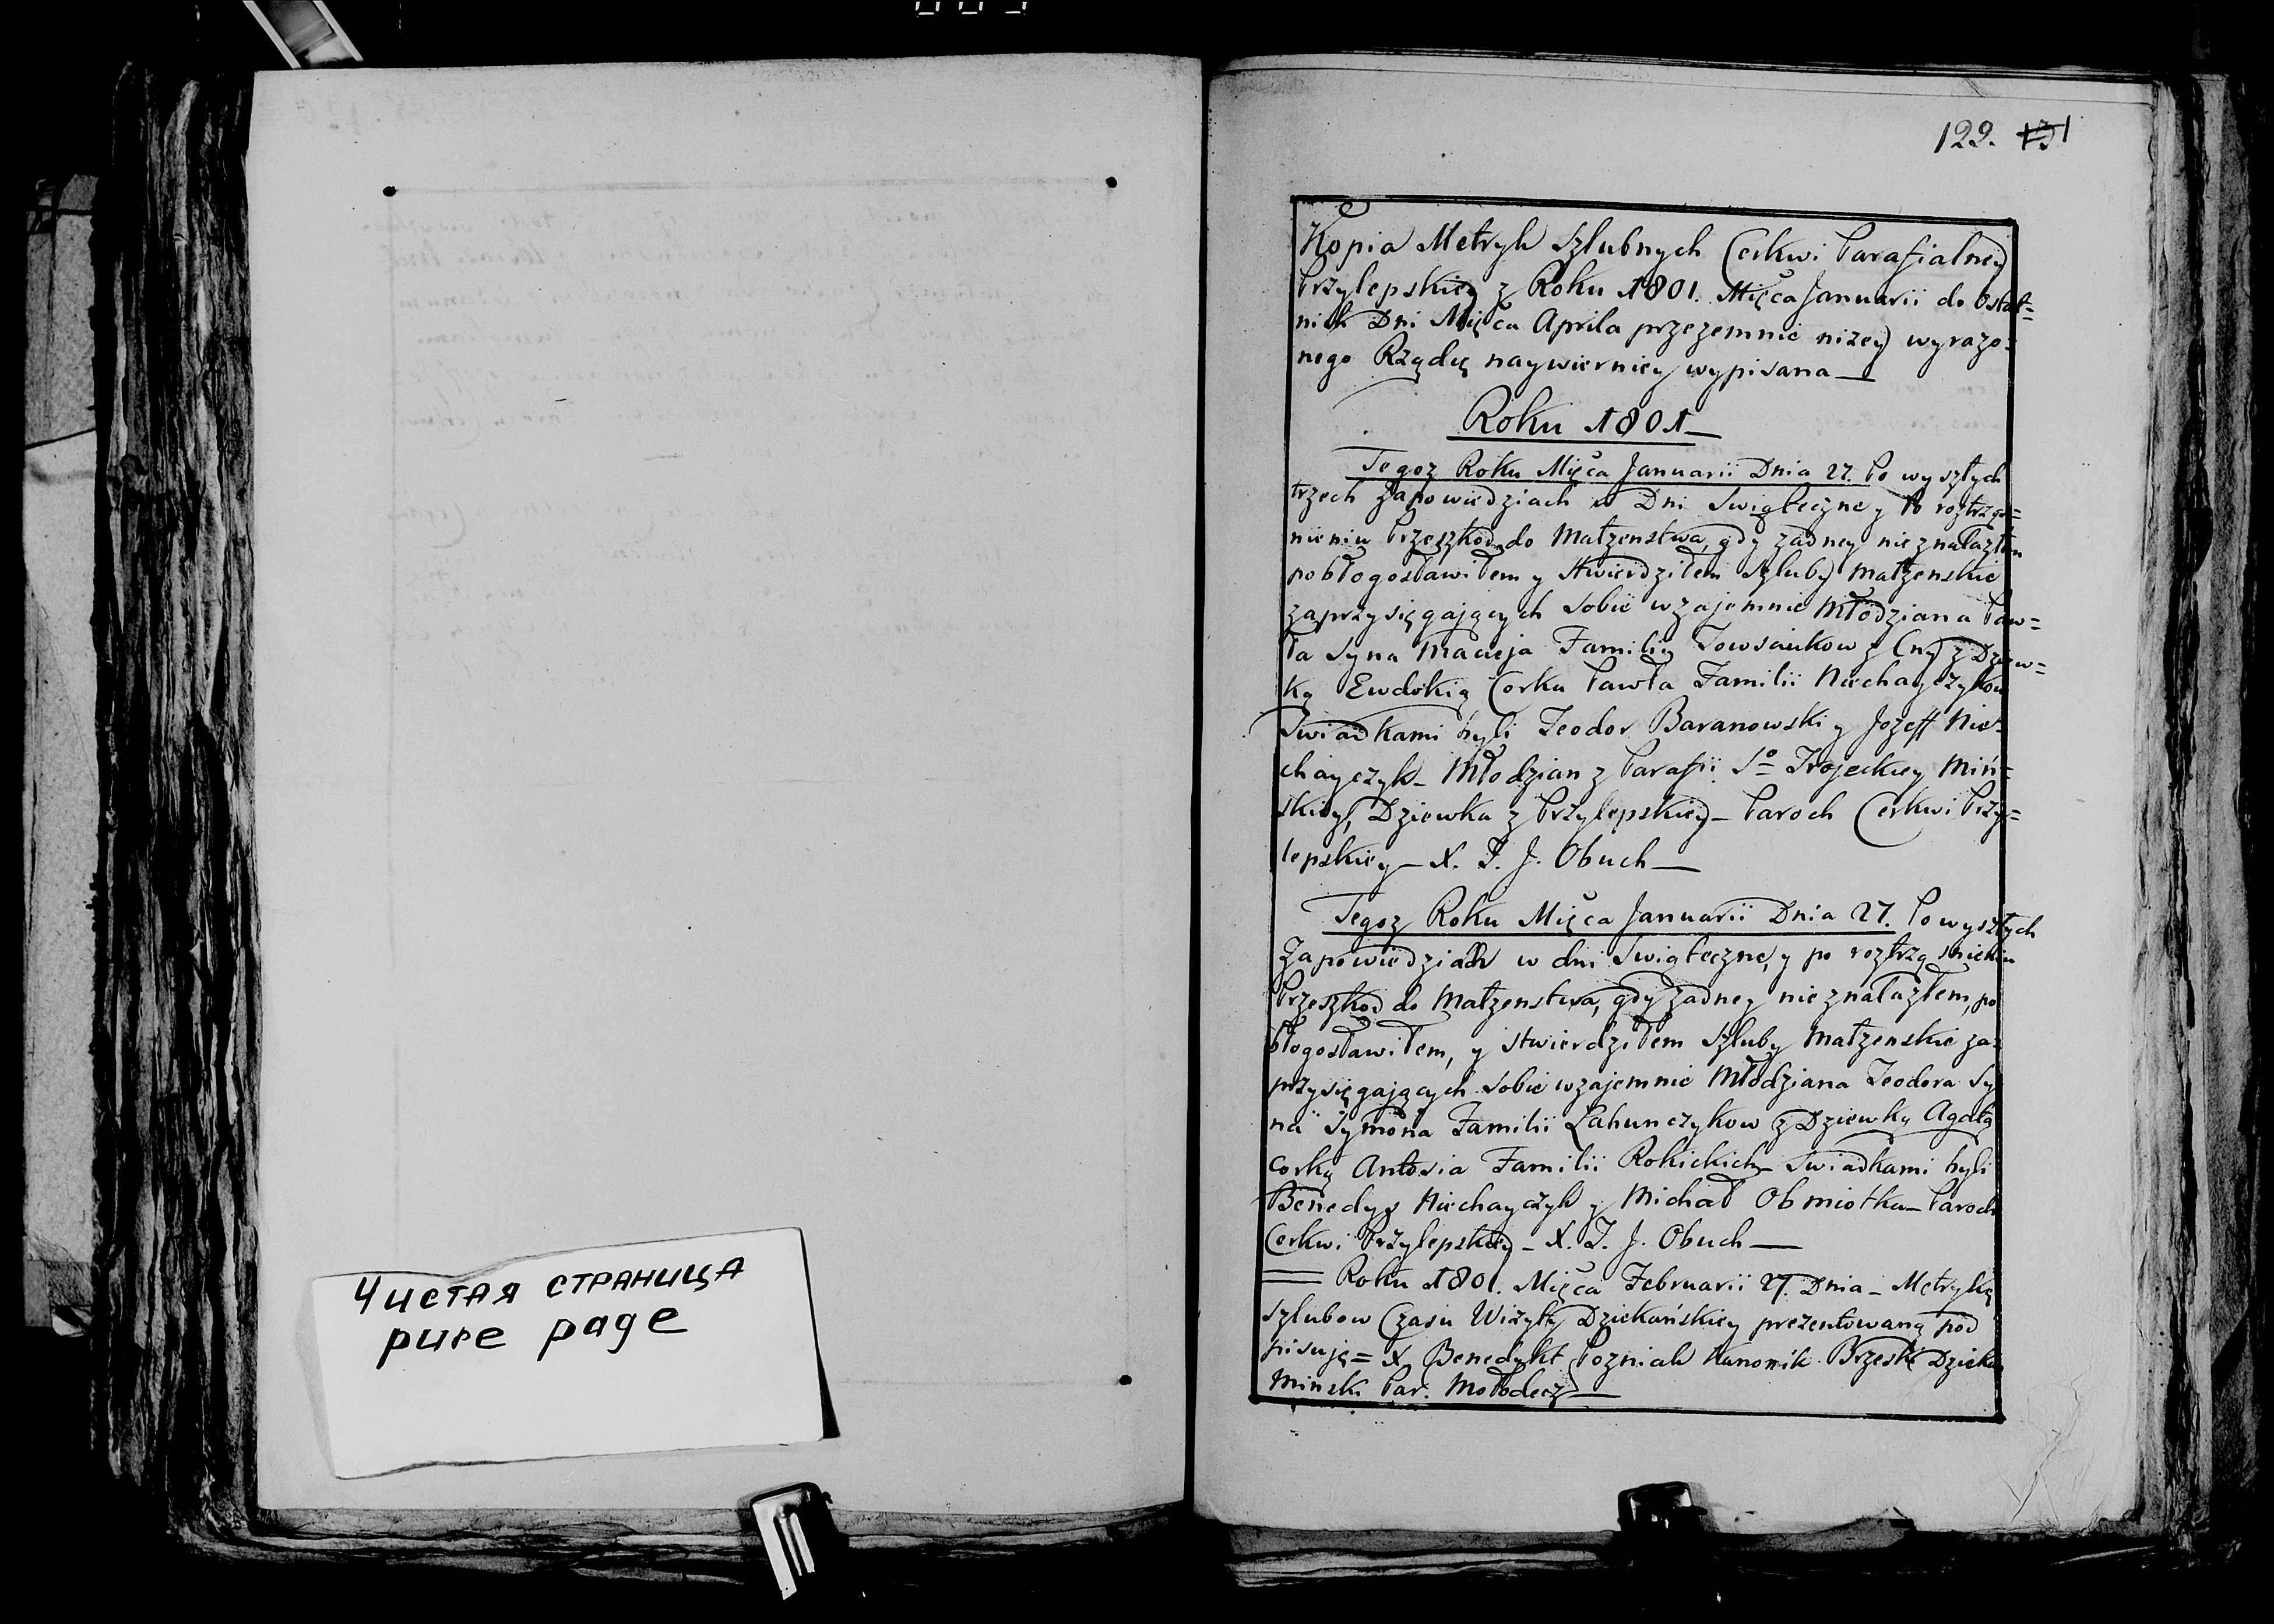 Чистая страница
pure page
122. 131
Kopia Metryk Szlubnych Cerkwi Parafialney
Przylepskiey z Roku 1801. Mięca Januarii do ostat=
nich Dni Mięca Aprila przezemnie nizey wyrazo=
nego Rządcę naywierniey wypisana —
Roku 1801 —
Tegoz Roku Mięca Januarii Dnia 27. Po wyszłych
trzech Zapowiedziach w Dni Swiąteczne y Po roztrzgs=
nieniu Przeszkod do Małzenstwa, gdy zadney nieznalazłem
pobłogosławiłem y stwierdziłem Szluby małzenskie
zaprzysięgaiących sobie wzajemnie Młodziana Paw=
ła Syna Macieja Familii z Dziew=
ką Ewdokią Corką Pawła Familii Niechayczykow
Swiadkami byli Teodor Baranowski y Jozeff Nie=
chayczyk — Młodzian z Parafii So Trojeckiey Miń=
skiey, Dziewka z Przylepskiey — Paroch Cerkwi Przy=
lepskiey — X. T. J. Obuch —
Tegoz Roku Mięca Januarii Dnia 27. Po wyszłych
Zapowiedziach w dni Swiąteczne, y po roztrzą snieniu
Przeszkod do Małzenstwa, gdy zadney nieznalazłem, po
błogosławiłem, y stwierdziłem Szluby Małzenskie za=
przysięgających sobie wzajemnie Młodziana Teodora Sy
na Symona Familii Łahunczykow z Dziewką Agatą
corką Antosia Familii Rokickich — Swiadkami byli
Benedyx Niechayczyk y Michał Obmiotka — Paroch
Cerkwi Przylepskiey — X. T. J. Obuch —
Roku 1801. Mięca Februarii 27. Dnia — Metrykę
szlubow Czasu Wizyty Dziekańskiey prezentowaną pod
pisuję = X. Benedykt Pozniak Kanonik Brzeski Dziekan
Minski Par. Mołodecz —